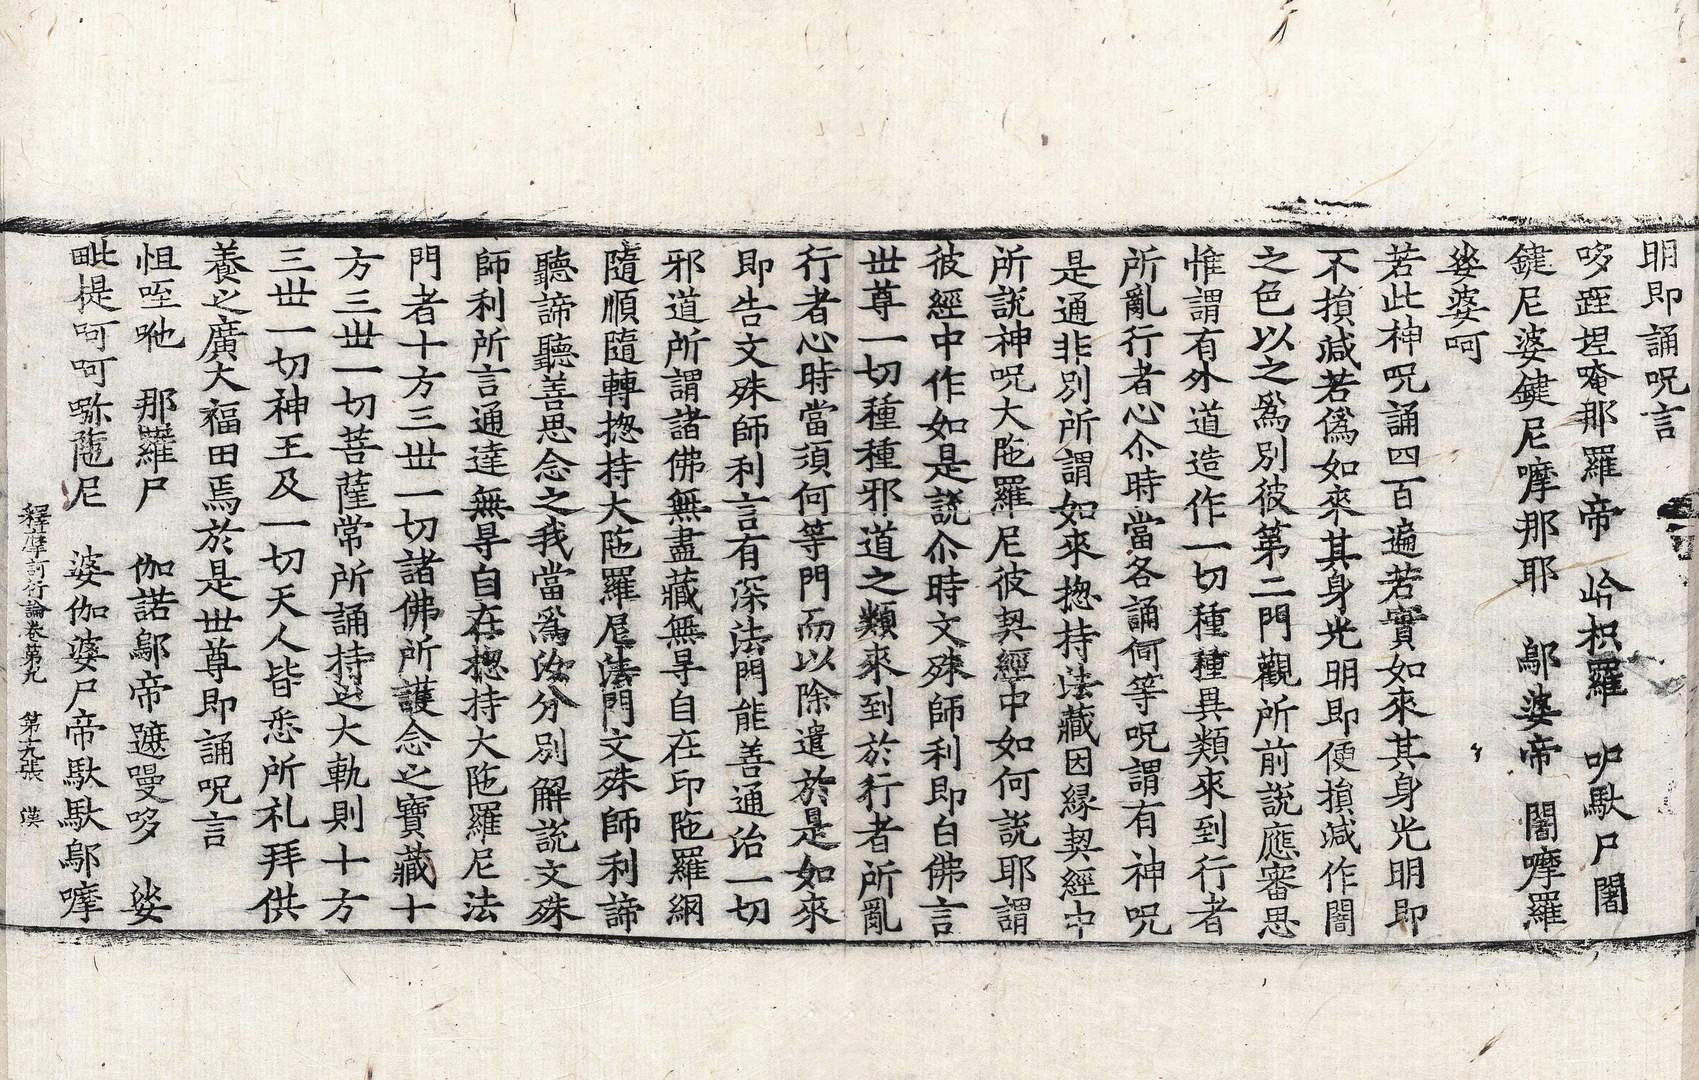 明即誦呪言
哆𨀛埕唵那羅帝　岭枳羅　𠯈馱尸闍
鍵尼婆婆鍵尼嚤那耶　鄔婆帝　闍嚤羅
娑婆呵
若此神呪誦四百遍若實如來其身光明即
不損減若僞如來其身光明即便損減作闇
之色以之爲別彼第二門觀所前説應審思
惟謂有外道造作一切種種異類來到行者
所亂行者心尒時當各誦何等呪謂有神呪
是通非別所謂如來捴持法藏因縁契經中
所説神呪大陁羅尼彼契經中如何説耶謂
彼經中作如是説尒時文殊師利即白佛言
世尊一切種種邪道之類來到於行者所亂
行者心時當須何等門而以除遣於是如來
即告文殊師利言有深法門能善通治一切
邪道所謂諸佛無盡藏無㝵自在印陁羅網
隨順隨轉捴持大陁羅尼法門文殊師利諦
聽諦聽善思念之我當爲汝分別解説文殊
師利所言通達無㝵自在捴持大陁羅尼法
門者十方三世一切諸佛所護念之寶藏十
方三世一切菩薩常所誦持之大軌則十方
三世一切神王及一切天人皆悉所礼拜供
養之廣大福田焉於是世尊即誦呪言
怛咥哋　那羅尸　伽諾鄔帝蹠嘜哆　娑
毗提呵呵㖿陁尼　婆伽婆尸帝馱馱鄔嚤
釋摩訶衍論卷第九　第十九張　漢